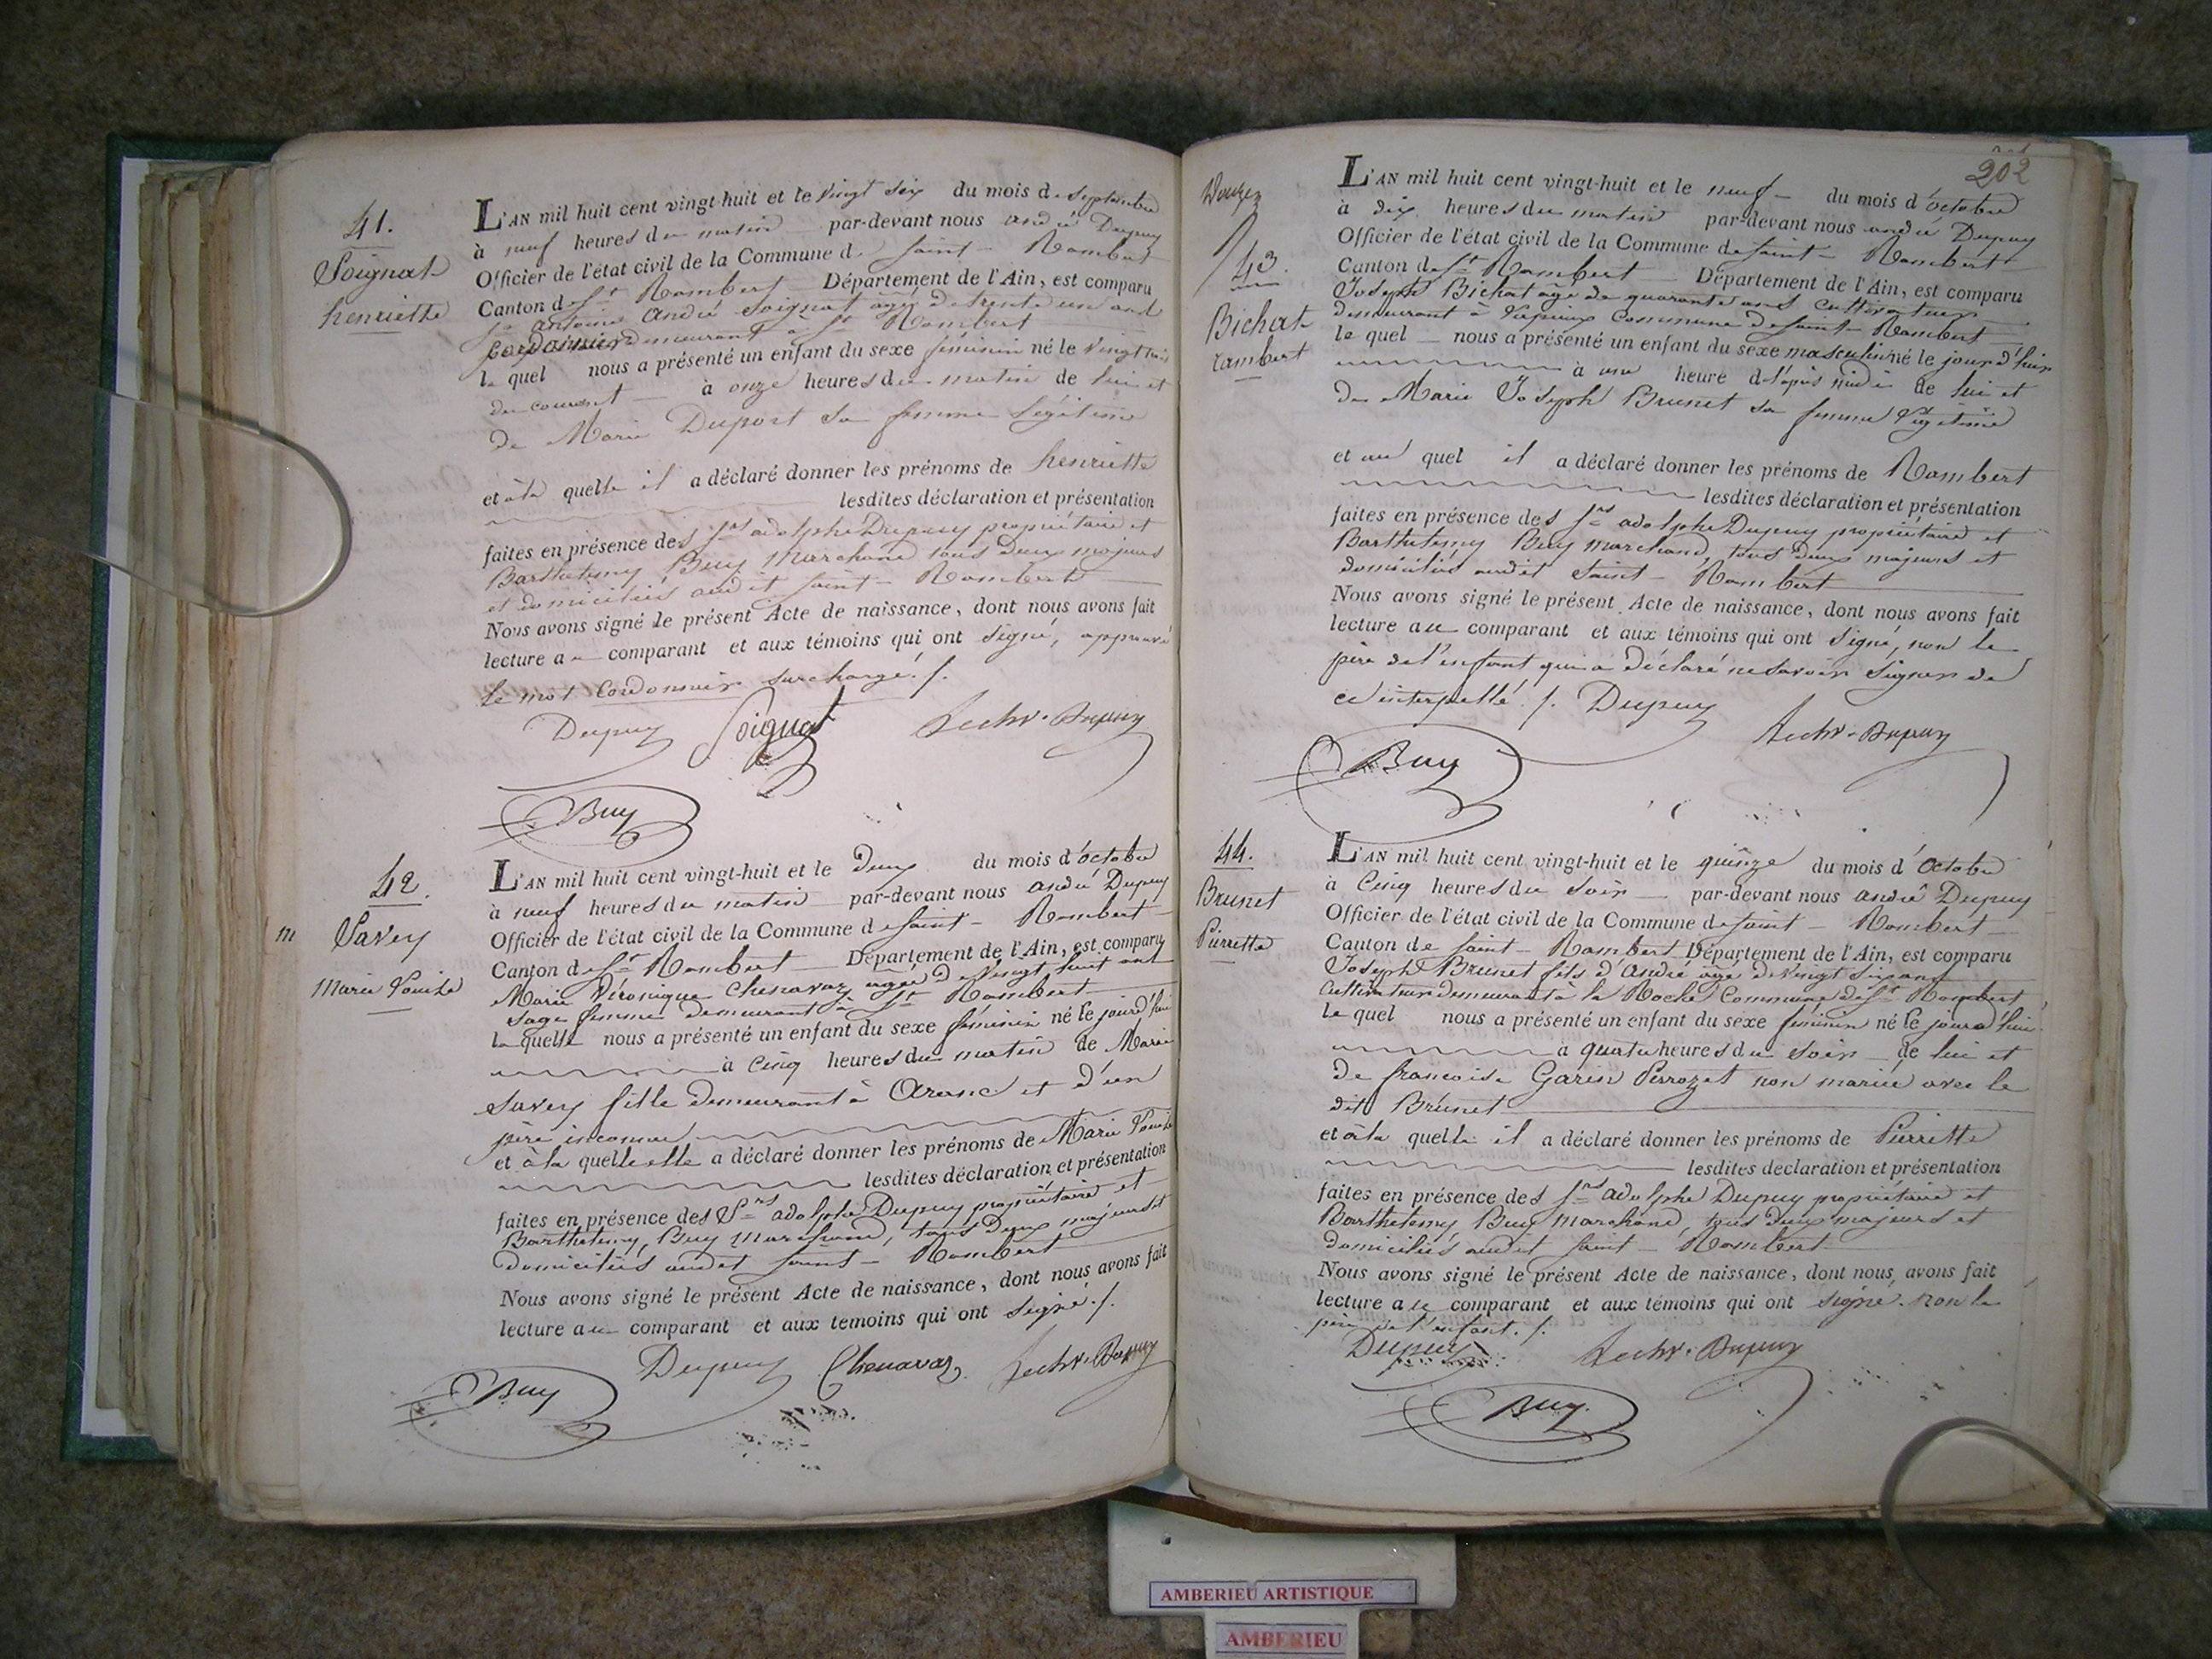 41.
Soignat
henriette
L'AN mil huit cent vingt-huit et le vingt six du mois de Septembre
à neuf heures du matin par-devant nous andré Dupuy
Officier de l'état civil de la Commune de Saint-Rambert
Canton de St Rambert Département de l'Ain, est comparu
Sr antoine andré Soignat agé de trente un ans
Cordonnier demeurant à St Rambert
le quel nous a présenté un enfant du sexe féminin né le vingt trois
du courant à onze heures du matin de lui et
de Marie Duport sa femme légitime
et à la quelle il a déclaré donner les prénoms de henriette
lesdites déclaration et présentation
faites en présence des Srs adolphe Dupuy propriétaire et
Barthelemy Buy Marchand tous deux majeurs
et domiciliés audit Saint-Rambert
Nous avons signé le présent Acte de naissance, dont nous avons fait
lecture au comparant et aux témoins qui ont Signé, approuvé
le mot Cordonnier surchargé ./.
Dupuy Soignat Dupuy
Buy
42.
m Savey
Marie Louise
L'AN mil huit cent vingt-huit et le deux du mois d'octobre
à neuf heures du matin par-devant nous andré Dupuy
Officier de l'état civil de la Commune de Saint-Rambert
Canton de St Rambert Département de l'Ain, est comparu
Marie Véronique Chenavaz agée de vingt huit ans
Sage femme demeurant à St Rambert
la quelle nous a présenté un enfant du sexe féminin né le jour d'hui
à Cinq heures du matin de Marie
Savey fille demeurant à Aranc et d'un
père inconnu
et à la quelle elle a déclaré donner les prénoms de Marie Louise
lesdites déclaration et présentation
faites en présence des Srs adolphe Dupuy propriétaire et
Barthelemy Buy Marchand, tous deux majeurs et
domiciliés audit Saint-Rambert
Nous avons signé le présent Acte de naissance, dont nous avons fait
lecture au comparant et aux temoins qui ont Signé ./.
Dupuy Chenavaz Dupuy
Buy
202
43.
Bichat
rambert
L'AN mil huit cent vingt-huit et le neuf du mois d'octobre
à dix heures du matin par-devant nous andré Dupuy
Officier de l'état civil de la Commune de Saint-Rambert
Canton de St Rambert Département de l'Ain, est comparu
Joseph Bichat âgé de quarante ans cultivateur
demeurant à Commune de Saint-Rambert
le quel nous a présenté un enfant du sexe masculin né le jour d'hier
à une heure d'après midi de lui et
de Marie Joseph Brunet sa femme légitime
et au quel il a déclaré donner les prénoms de Rambert
lesdites déclaration et présentation
faites en présence des Srs adolphe Dupuy propriétaire et
Barthelemy Buy marchand, tous deux majeurs et
domiciliés audit Saint-Rambert
Nous avons signé le présent Acte de naissance, dont nous avons fait
lecture au comparant et aux témoins qui ont Signé, non le
père de l'enfant qui a déclaré ne savoir Signer de
ce interpellé ./. Dupuy Dupuy
Buy
44.
Brunet
Pierrette
L'AN mil huit cent vingt-huit et le quinze du mois d'Octobre
à Cinq heures du Soir par-devant nous andré Dupuy
Officier de l'état civil de la Commune de Saint-Rambert
Canton de Saint-Rambert Département de l'Ain, est comparu
Joseph Brunet fils d'André age de vingt six ans
cultivateur demeurant à la Roche Commune de St Rambert
le quel nous a présenté un enfant du sexe féminin né le jour d'hui
à quatre heures du soir de lui et
de francoise Garin Perrozet non mariée avec le
dit Brunet
et à la quelle il a déclaré donner les prénoms de Pierrette
lesdites declaration et présentation
faites en présence des Srs adolphe Dupuy propriétaire et
Barthelemy Buy Marchand, tous deux majeurs et
domiciliés audit Saint-Rambert
Nous avons signé le présent Acte de naissance, dont nous avons fait
lecture au comparant et aux témoins qui ont signé. non le
père de l'enfant ./.
Dupuy Dupuy
Buy
AMBERIEU ARTISTIQUE
AMBERIEU